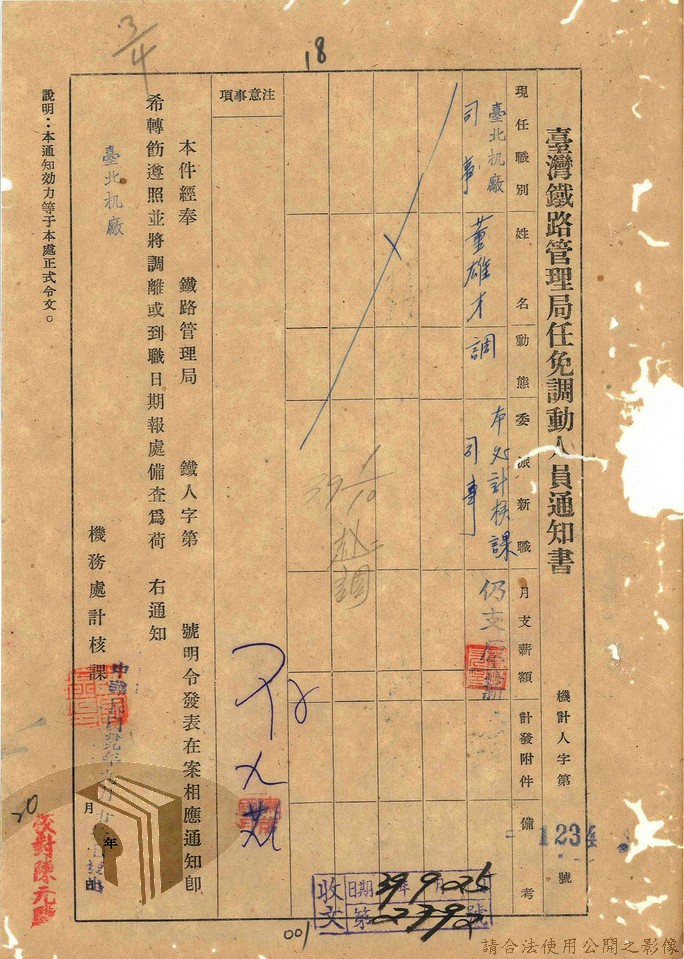 臺灣鐵路管理局任免調動人員通知書
機計人字第1234號
現任職別 姓名 動態 委派新職 月支薪額 計發附件 備考
臺北机廠司事 董雄才 調 本處計核課司事 仍支原薪
39 1/10 赴調
注意事項
本件經奉 鐵路管理局 鐵人字第 號明令發表在案相應通知卽
希轉飭遵照並將調離或到職日期報處備查爲荷 右通知
臺北机廠
機務處計核課
中華民國卅九年九月廿 日
年月
說明：本通知効力等于本處正式令文。
3/4
18
20
校對陳元
收文 日期39年9月025 第02392號
001
請合法使用公開之影像